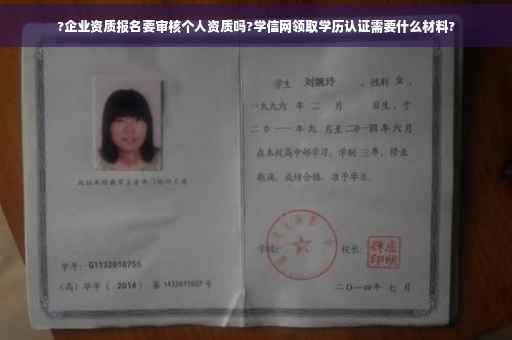 ?企业资质报名要审核个人资质吗?学信网领取学历认证需要什么材料?
学生 刘婉玲 ，性别 女 ，
一九九六 年 二 月 日生，于
二0一一年九 月至二0一四年六月
在本校高中部学习，学制 三年，修业
期满，成绩合格，准予毕业。
学号： G1132010755
（高）毕字（ 2014 ）第 1432011027 号
学校：
校长：
二〇一四年 七 月